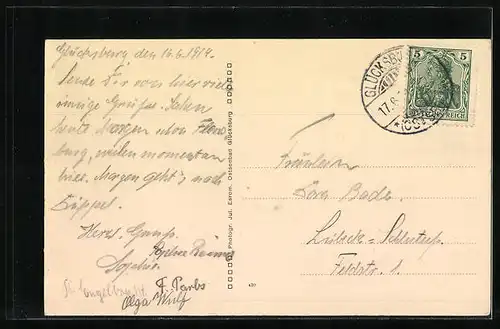 Glücksburg den 16.6.1914.
sende Dir von hier viel
innige Grüße. Haben
heute Morgen schon Flens-
burg, weilen momentan
hier. Morgen geht's nach
Düppel.
Herzl. Gruß
Sophie
F. Parbs
Olga Wulf
Photogr. Jul. Ostseebad Glücksburg
GLÜCKSBU
17.6.
(OSTSEE)
5 5
REICH
Fräulein
Dora Bade.
Lübeck=Schlutup.
Feldstr. 1.